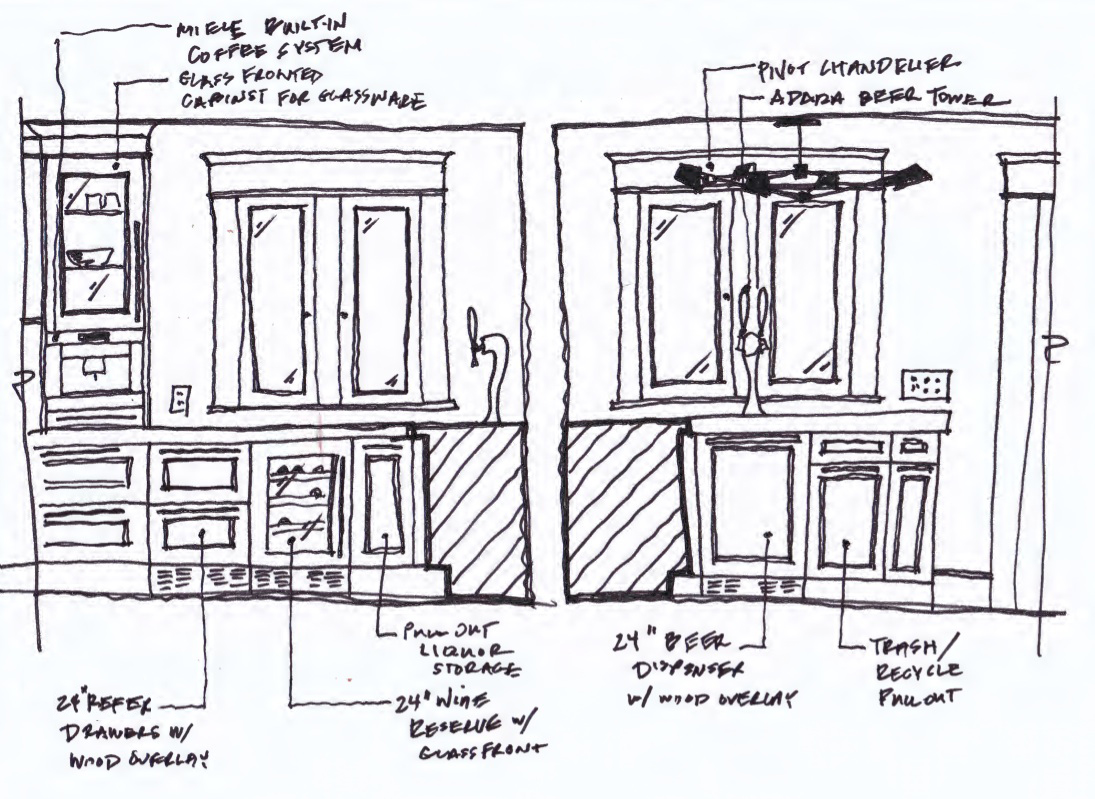 MIELE BUILT-IN
COFFEE SYSTEM
GLASS FRONTED
CABINET FOR GLASSWARE
PIVOT CHANDELIER
BEER TOWER
PULL OUT
LIQUOR
STORAGE
24" BEER
DISPENSER
W/ WOOD OVERLAY
TRASH/
RECYCLE
PULLOUT
24" REFER
DRAWERS W/
WOOD OVERLAY
24" WINE
RESERVE W/
GLASS FRONT